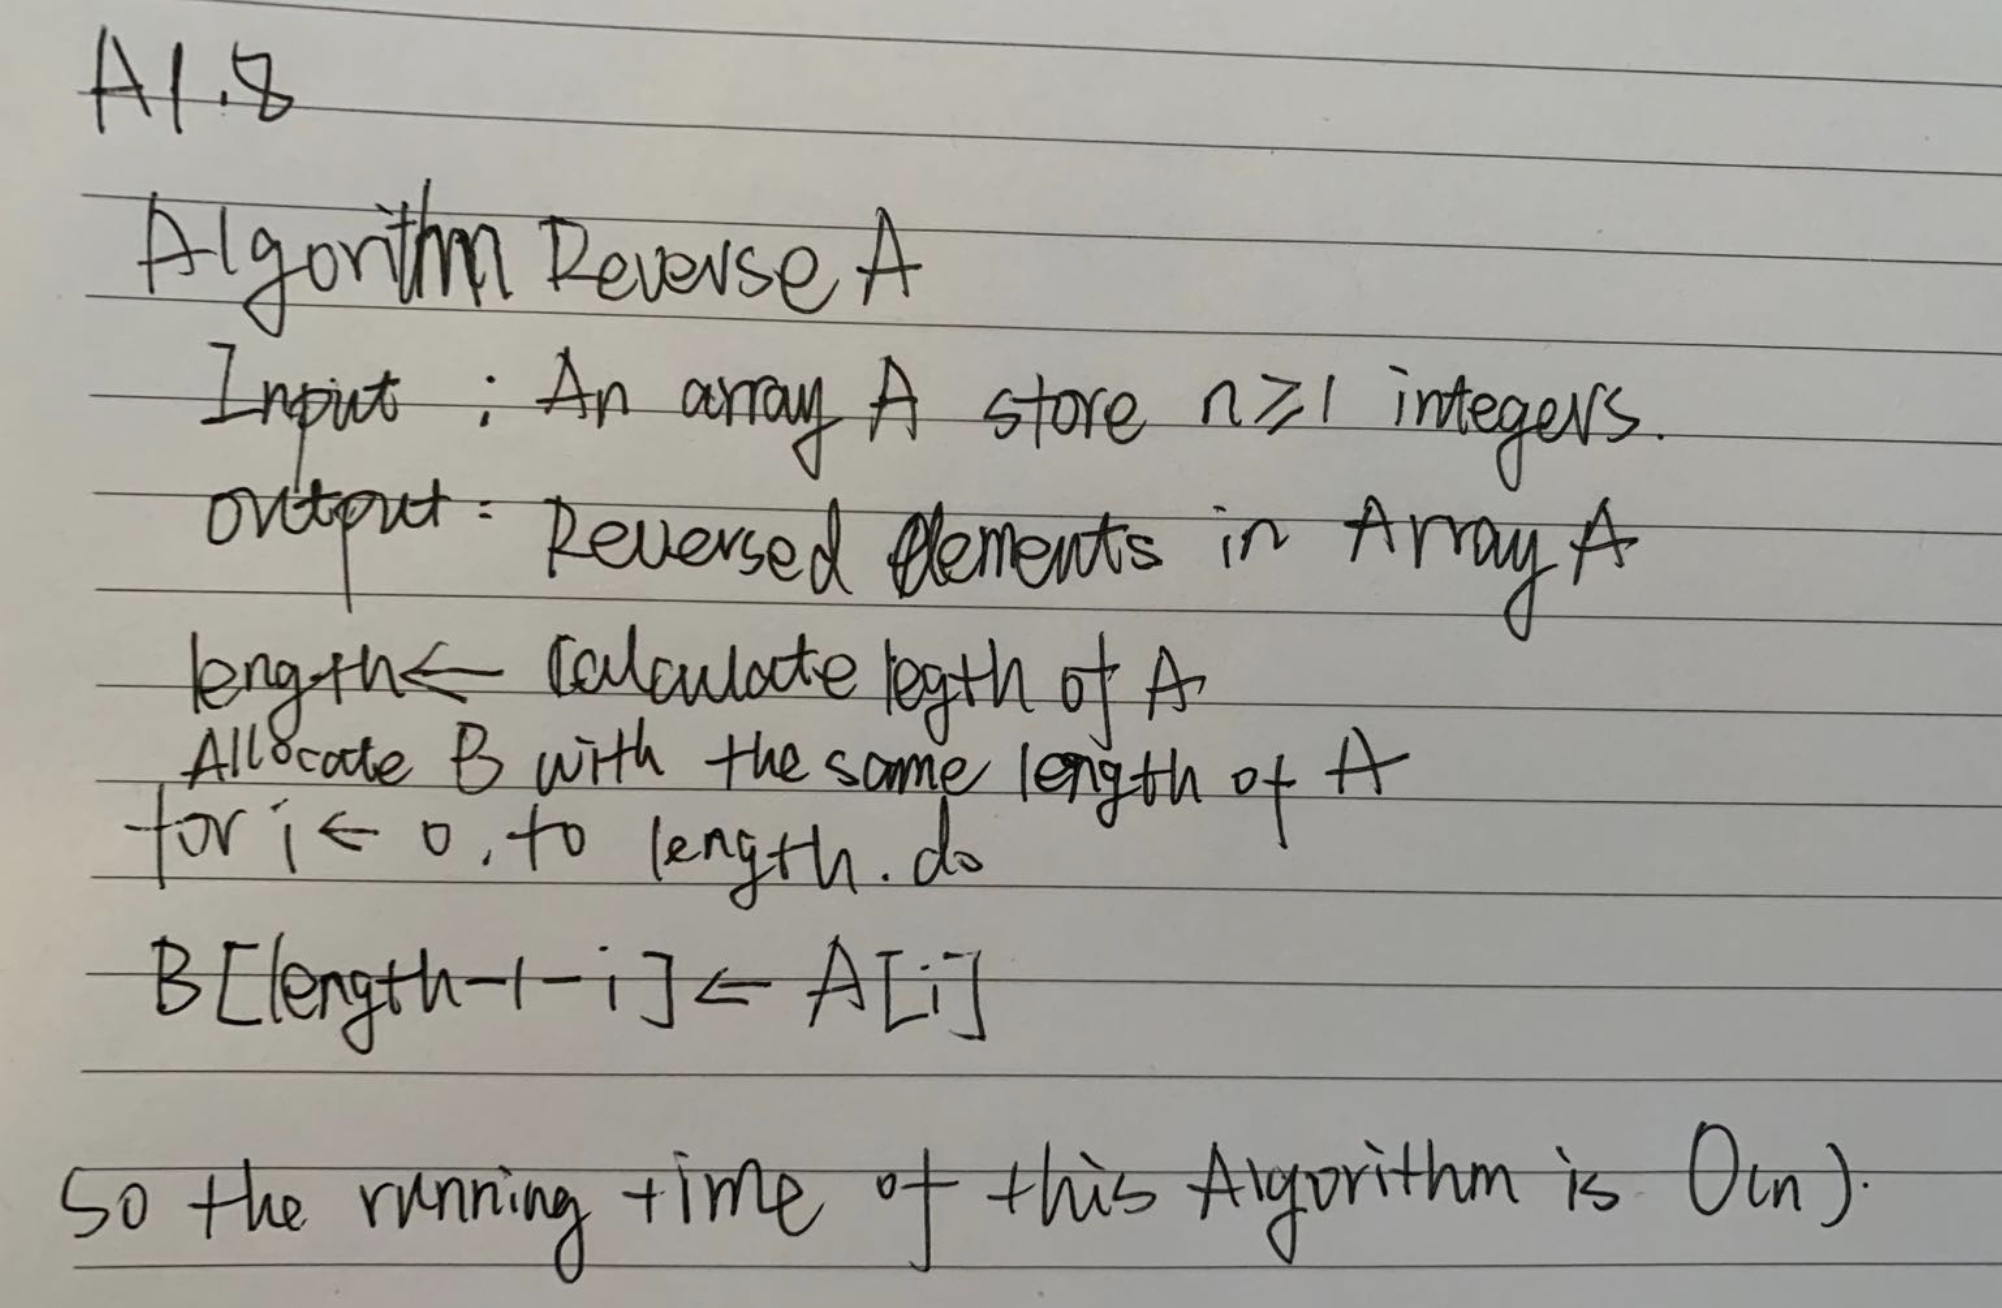 A1.8
Algorithm Reverse A
Input : An array A store n≥1 integers.
output : Reversed elements in Array A
length ← Calculate legth of A
Allocate B with the same length of A
for i ← 0, to length. do
B[length-1-i] ← A[i]
So the running time of this Algorithm is O(n).